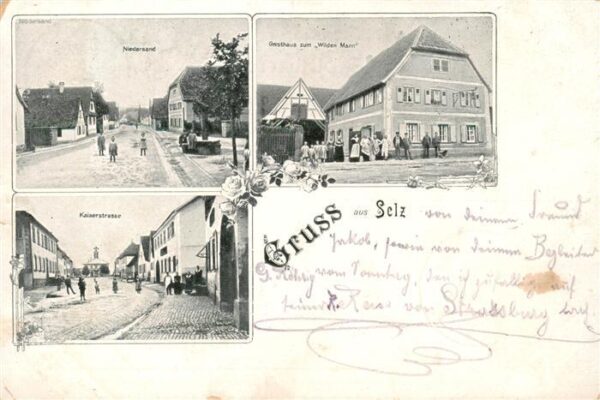 Niedersand
Niedersand
Gasthaus zum „Wilden Mann"
Kaiserstrasse
Gruss aus Selz
von deinem Freund
Jakob, sowie von deinem Begleiter
vom Sonntag, den ich zufällig auf
von Strassburg